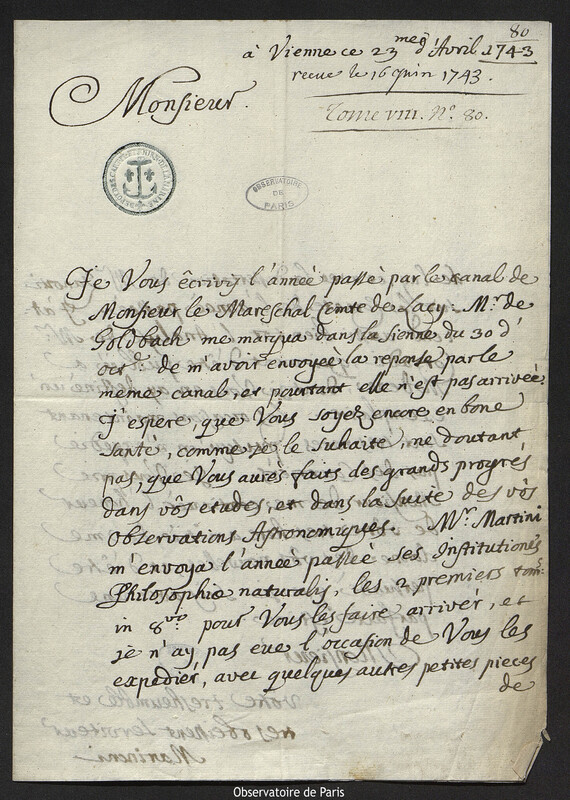 80
à Vienne ce 23 me d'Avril 1743
recue le 16 Juin 1743.
Monsieur.
Tome VIII. N.° 80.
OBSERVATOIRE
DE
PARIS
Je Vous êcrivij l'année passé par le canal de
Monsieur le Mareschal Comte de Lacy: Mr. de
Goldbach me marqua dans la sienne du 30 d'
oct. de m'avoir envoyée la reponse par le
même canal, et pourtant elle n'est pas arrivée.
J'espere, que Vous soyez encore en bone
santé, comme je le suhaite, ne doutant
pas, que Vous aurés faits des grands progrés
dans vôs etudes, et dans la suite des vôs
Observations Astronomiques. Mr. Martini
m'envoya l'année passée ses Institutiones
Philosophiæ naturalis, les 2 premiers tom:
in 8vo. pour Vous les faire arrivér, et
je n'ay pas eüe l'occasion de Vous les
expediér, avec quelques autres petites pieces
de
votre tres humble et
tres obeissent serviteur
Marinoni
Observatoire de Paris